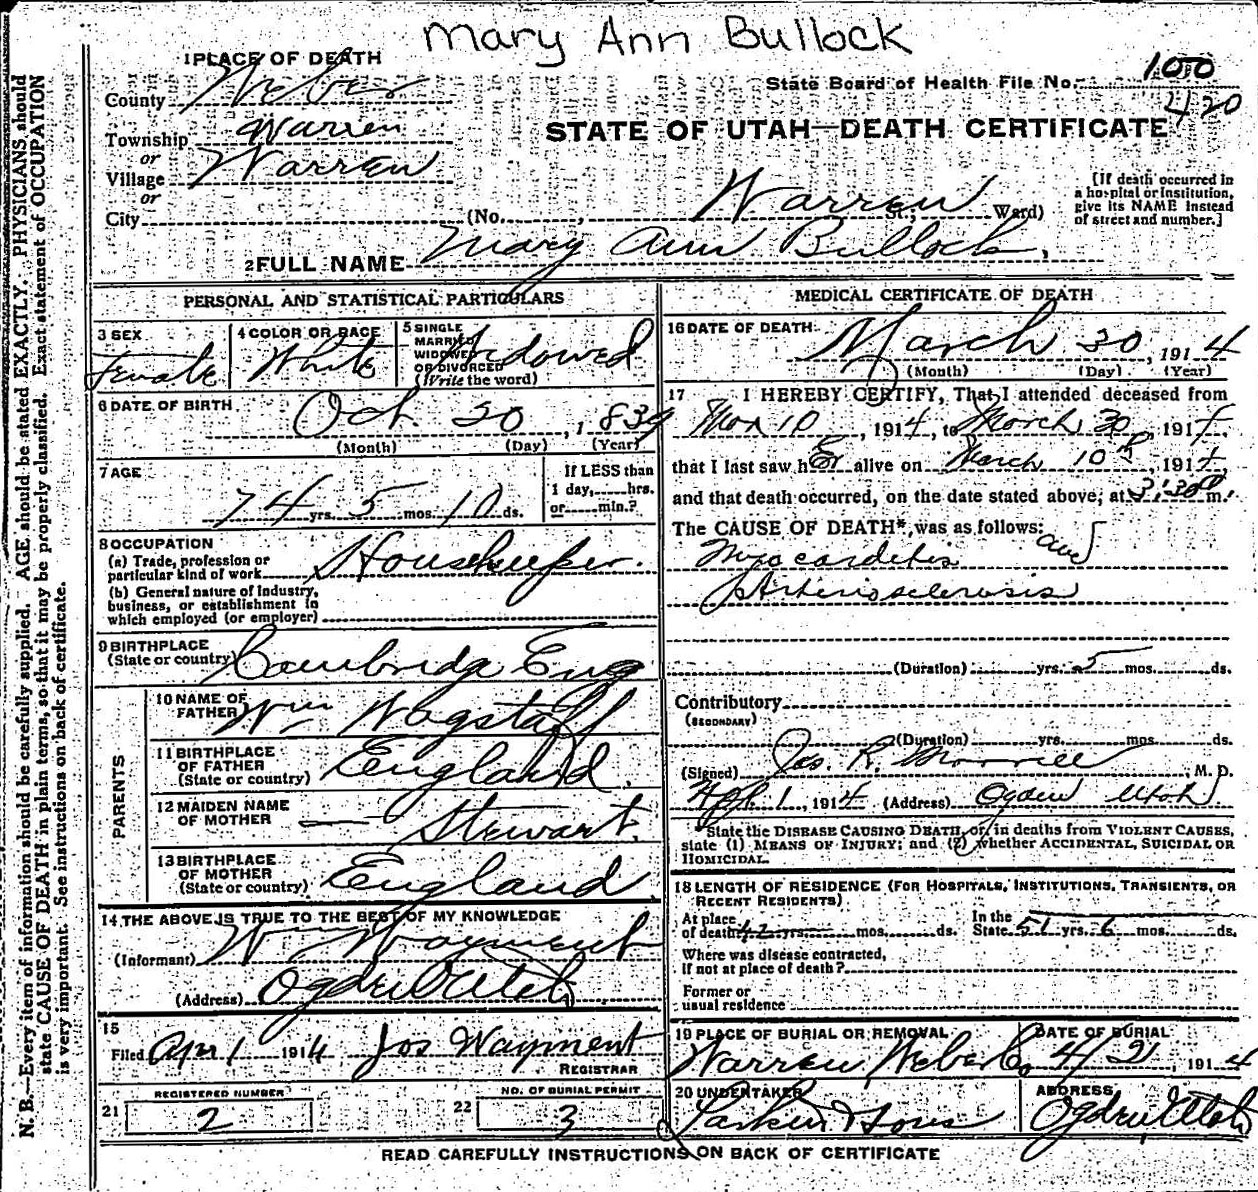 Mary Ann Bullock
1 PLACE OF DEATH
County Weber
State Board of Health File No. 100
420
Township Warren
or
Village Warren
or
STATE OF UTAH—DEATH CERTIFICATE
City (No. , Warren St.; Ward)
[If death occurred in a hospital or institution, give its NAME instead of street and number.]
2 FULL NAME Mary Ann Bullock,
PERSONAL AND STATISTICAL PARTICULARS
3 SEX Female
4 COLOR OR RACE White
5 SINGLE MARRIED WIDOWED OR DIVORCED (Write the word) Widowed
6 DATE OF BIRTH Oct. 20, 1839
(Month) (Day) (Year)
7 AGE 74 yrs. 5 mos. 10 ds.
If LESS than 1 day, hrs. or min.?
8 OCCUPATION
(a) Trade, profession or particular kind of work Housekeeper.
(b) General nature of industry, business, or establishment in which employed (or employer)
9 BIRTHPLACE (State or country) Cambridg Eng
PARENTS
10 NAME OF FATHER Wm Wagstaff
11 BIRTHPLACE OF FATHER (State or country) England.
12 MAIDEN NAME OF MOTHER — Stewart.
13 BIRTHPLACE OF MOTHER (State or country) England.
14 THE ABOVE IS TRUE TO THE BEST OF MY KNOWLEDGE
(Informant) W Wayment
(Address) Ogden Utah
15 Filed Apr 1 1914 Jos Wayment
REGISTRAR
REGISTERED NUMBER
21 2
NO. OF BURIAL PERMIT
22 3
MEDICAL CERTIFICATE OF DEATH
16 DATE OF DEATH March 30, 1914
(Month) (Day) (Year)
17 I HEREBY CERTIFY, That I attended deceased from
Mar 10, 1914, to March 30, 1914,
that I last saw her alive on March 10th, 1914,
and that death occurred, on the date stated above, at 3:30 P m.
The CAUSE OF DEATH*, was as follows:
Myocarditis and
Arteriosclerosis
(Duration) yrs. 5 mos. ds.
Contributory
(SECONDARY)
(Duration) yrs. mos. ds.
(Signed) Jos. R. Morrell, M. D.
Apr 1, 1914 (Address) Ogden Utah
*State the DISEASE CAUSING DEATH, or, in deaths from VIOLENT CAUSES, state (1) MEANS OF INJURY; and (2) whether ACCIDENTAL, SUICIDAL OR HOMICIDAL.
18 LENGTH OF RESIDENCE (FOR HOSPITALS, INSTITUTIONS, TRANSIENTS, OR RECENT RESIDENTS)
At place of death 42 yrs. mos. ds. In the State 51 yrs. 6 mos. ds.
Where was disease contracted, if not at place of death?
Former or usual residence
19 PLACE OF BURIAL OR REMOVAL Warren Weber Co
DATE OF BURIAL 4/ 1914
20 UNDERTAKER Larkin & Sons
ADDRESS Ogden, Utah
READ CAREFULLY INSTRUCTIONS ON BACK OF CERTIFICATE
N. B.—Every item of information should be carefully supplied. AGE should be stated EXACTLY. PHYSICIANS should
state CAUSE OF DEATH in plain terms, so that it may be properly classified. Exact statement of OCCUPATION
is very important. See instructions on back of certificate.